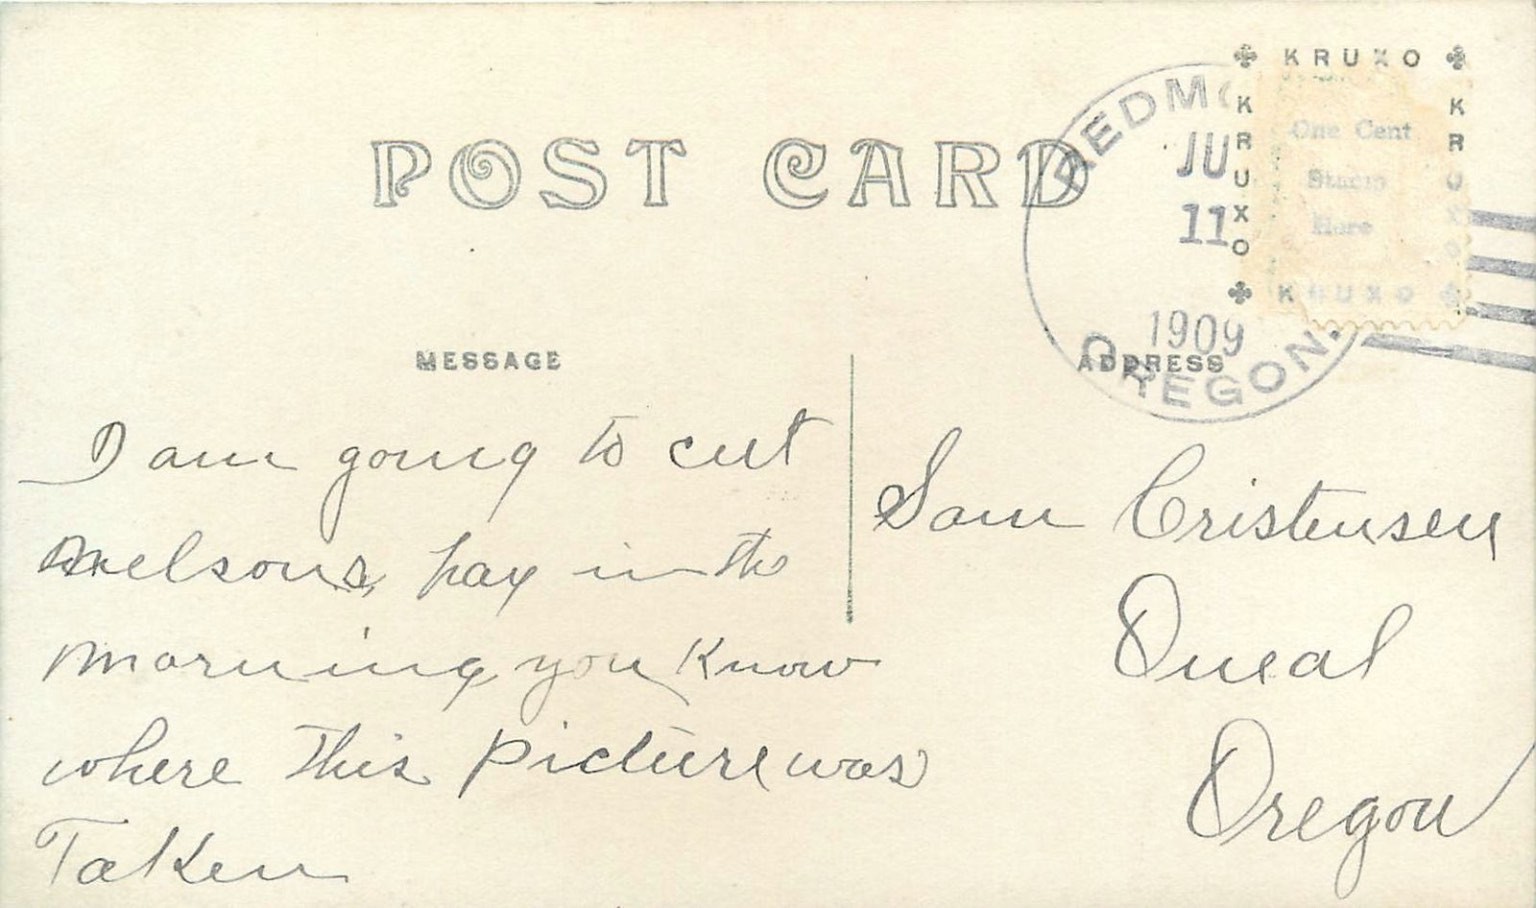 KRUXO
KRUXO
KRUXO
KRUXO
One Cent
Stamp
Here
REDMO
JU
11
1909
OREGON.
POST CARD
MESSAGE
ADDRESS
I am going to cut
Nelsons hay in the
morning you Know
where this picture was
Taken
Sam Cristensen
Oneal
Oregon